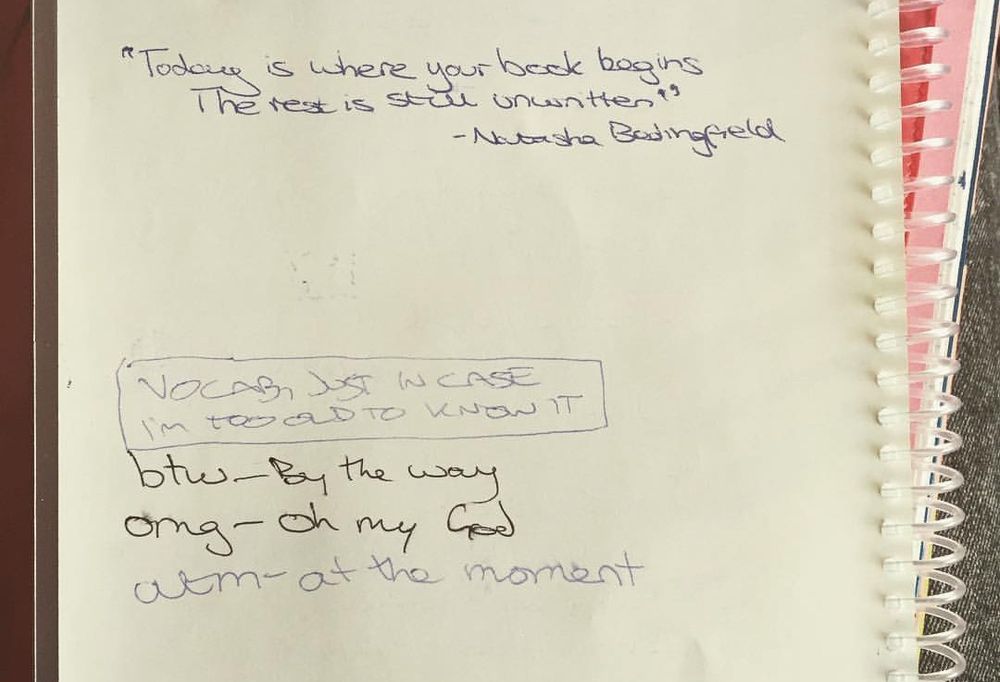 "Today is where your book begins
The rest is still unwritten"
- Natasha Bedingfield
VOCAB, JUST IN CASE
I'm TOO OLD TO KNOW IT
btw - By the way
omg - oh my God
atm - at the moment